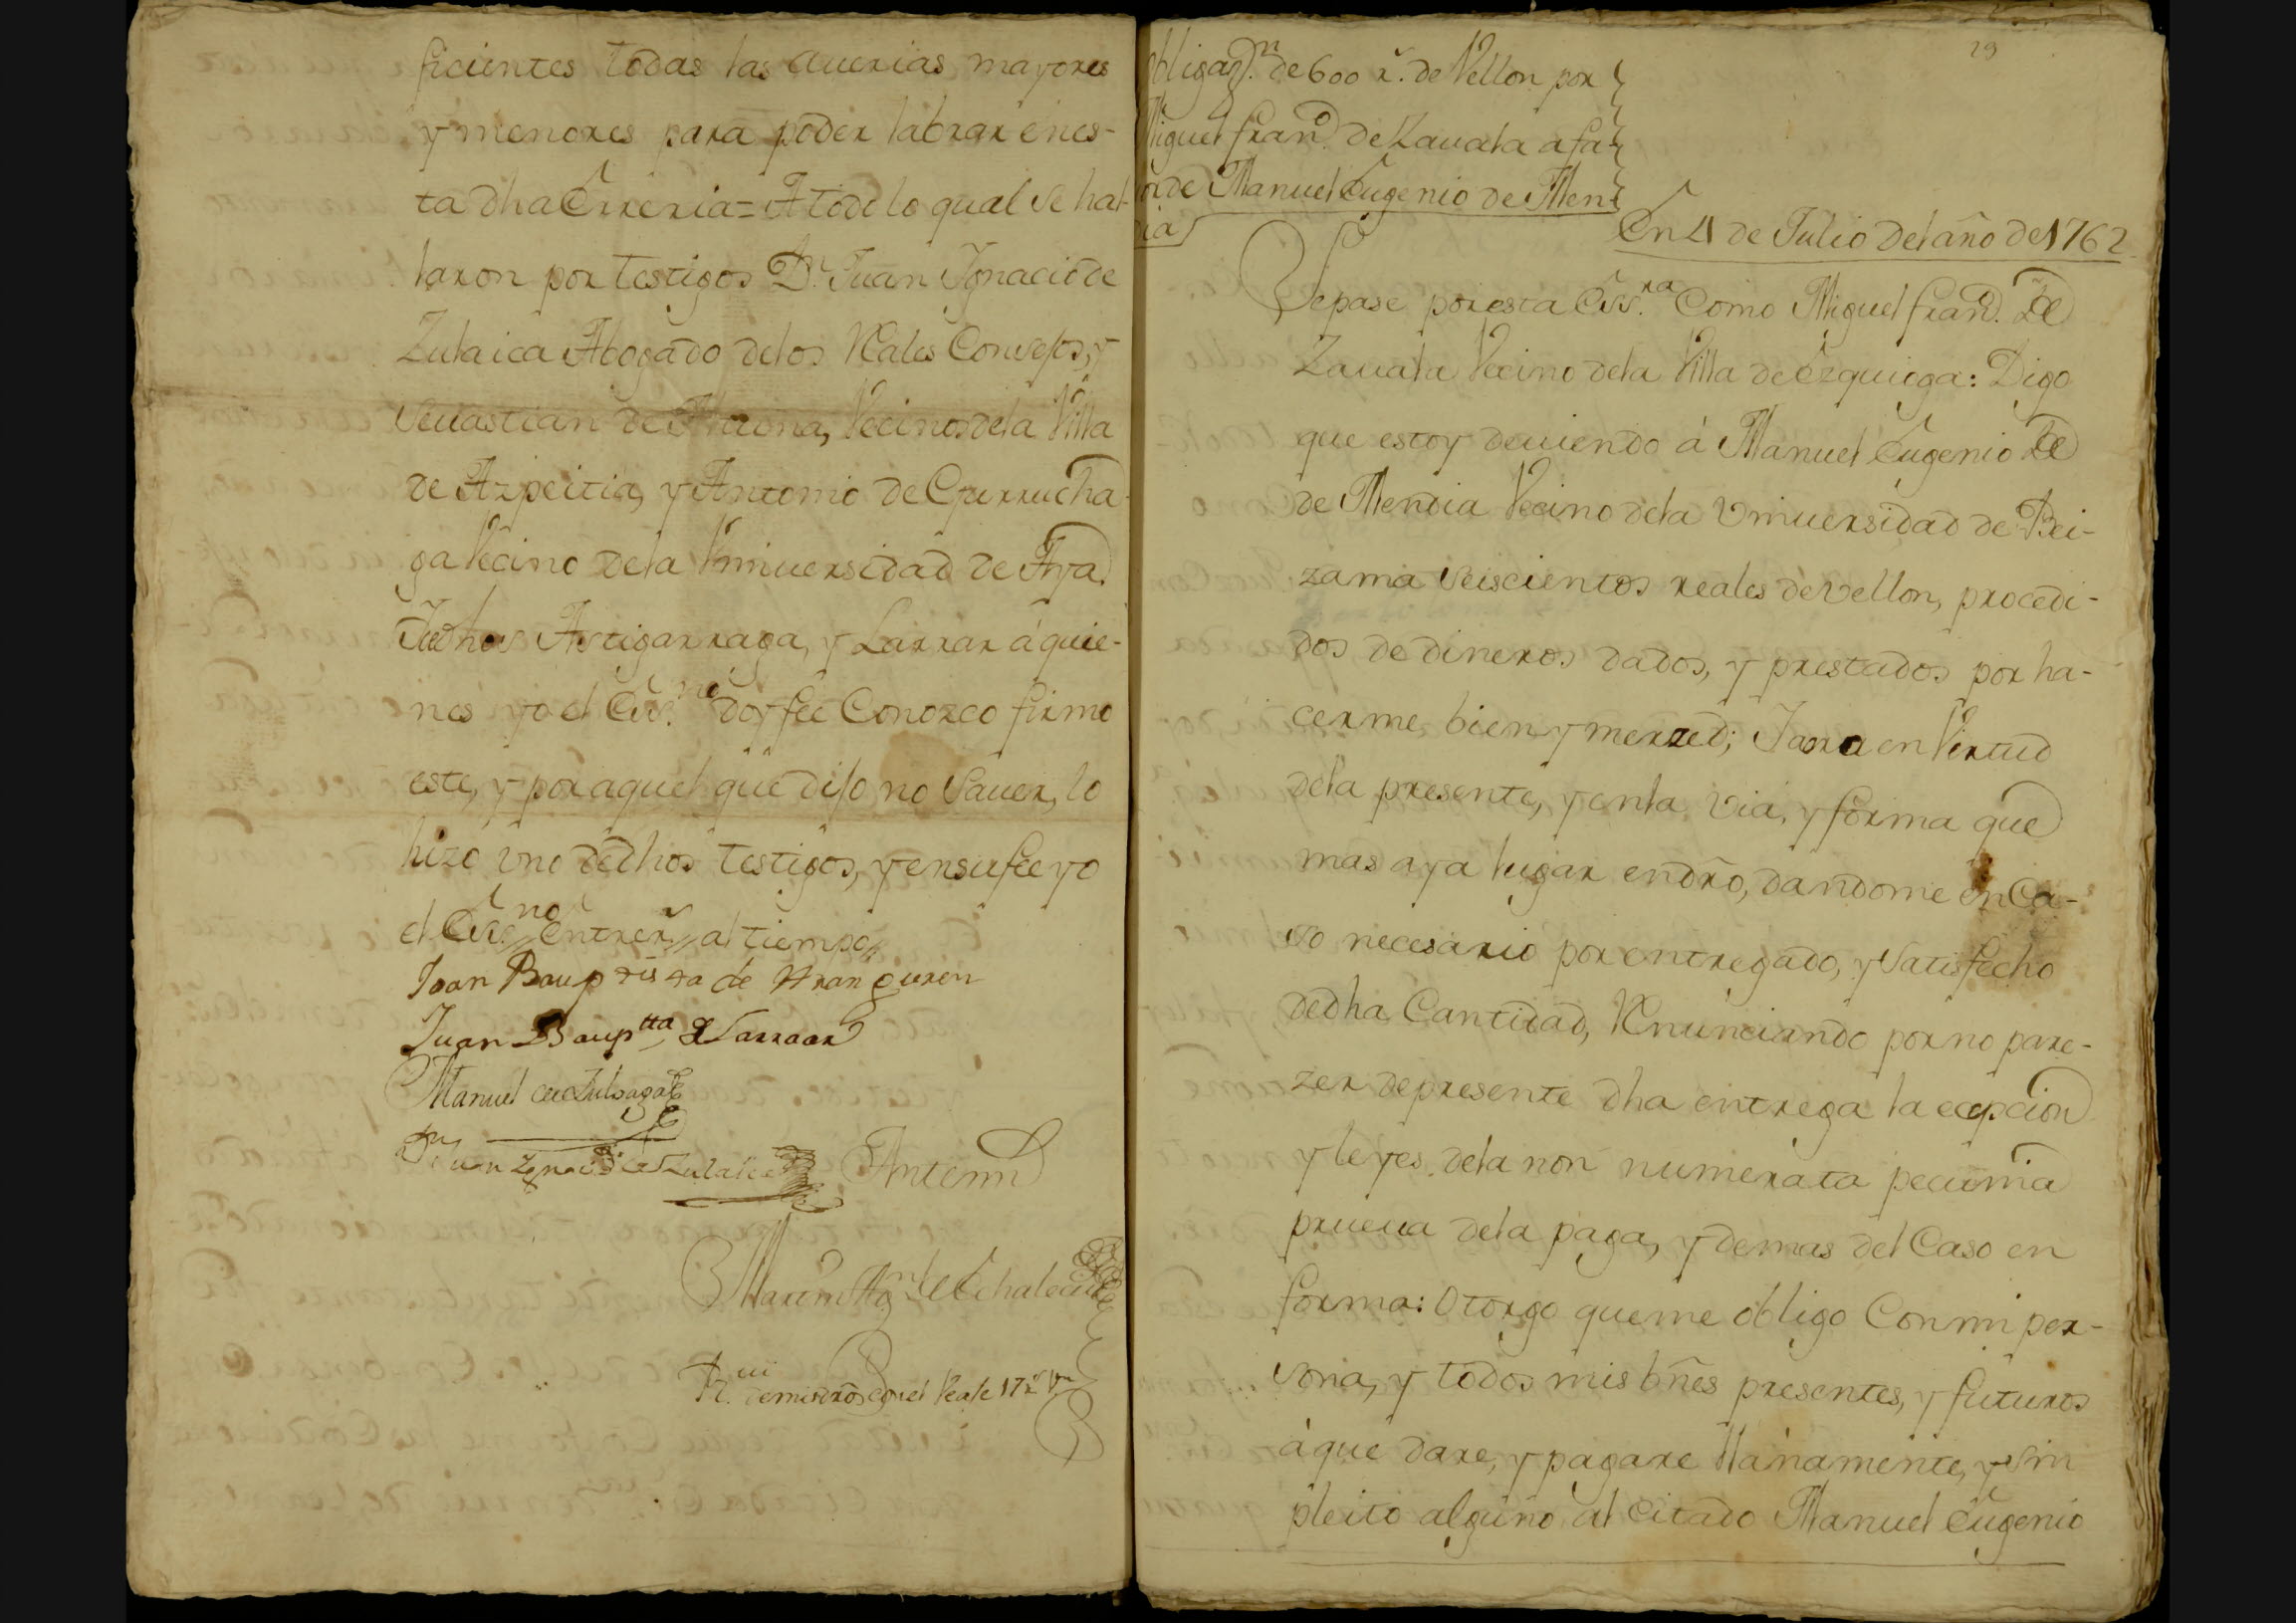 ficientes todas las auerias mayores
y menores para poder labrar en es-
ta dha Erreria = A todo lo qual se hal-
laron por testigos Dn. Juan Ygnacio de
Zulaica Abogado de los Rales Consejos, y
Seuastian de Vecinos de la Villa
de Azpeitia, y Antonio de Gurrucha
ga Vecino de la Vniuersidad de Aya.
Astigarraga, y Larrar á quie-
nes yo el Essno. doy feé Conozco firmo
este, y por aquel que dijo no Sauer, lo
hizo vno de dhos testigos, y en su fee yo
el Essno. // Entrer.s // al tiempo //
Joan Bauptista de Aranguren
Juan Bauptta de Larraar
Manuel de Zuloaga
Juan Ygnacio de Zulaica Antemi
de Echalecu
de mis dros con el Reale 17 rs. Vn
29
obligazn. de 600 rs. de Vellon por
Miguel frano. de Zauala a fa-
or de Manuel Eugenio de Men
dia
En 4 de Julio del año de 1762
Sepase por esta Essra. Como Miguel frano. de
Zauala Vecino de la Villa de Ezquioga: Digo
que estoy deuiendo á Manuel Eugenio de
de Mendia Vecino de la Vniuersidad de Bei-
zama Seiscientos reales de vellon, procedi-
dos de dineros dados, y prestados por ha-
cerme bien y merzed; Y aora en Virtud
de la presente, y en la via, y forma que
mas aya lugar en dro, dandome en Ca-
so necesario por entregado, y Satisfecho
de dha Cantidad, Renunciando por no pare-
zer de presente dha entrega la ecepcion
y leyes de la non numerata pecunia
prueua de la paga, y demas del Caso en
forma: Otorgo que me obligo Con mi per-
sona, y todos mis bñes presentes, y futuros
á que dare, y pagare llanamente, y Sin
pleito alguno al Citado Manuel Eugenio